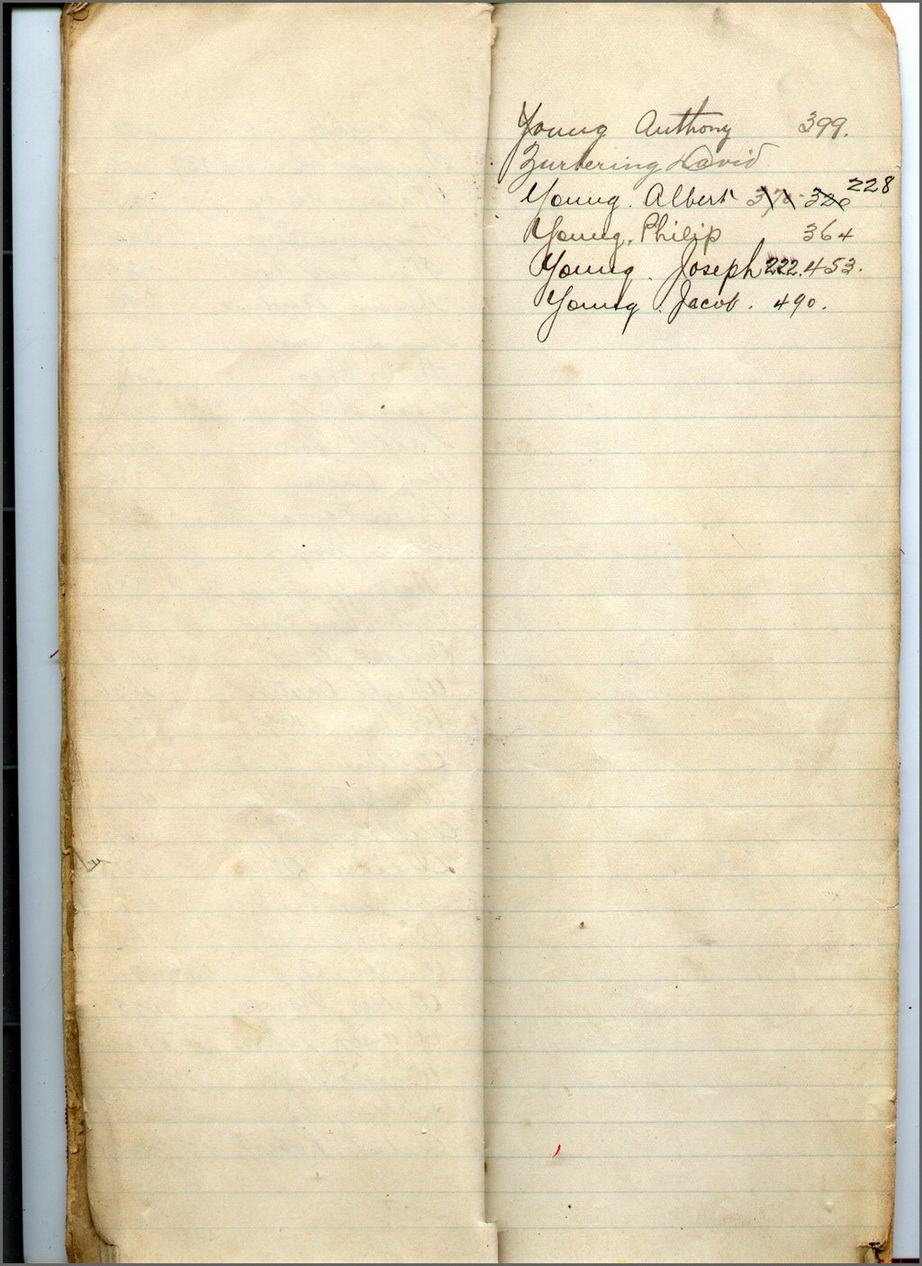 Young Anthony 399.
Zurbering David
Young. Albert 228
Young, Philip 364
Young. Joseph 222.453.
Young. Jacob. 490.